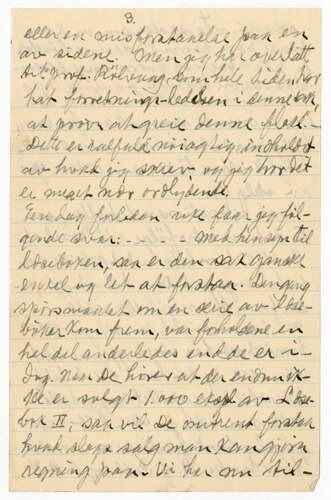 3.
eller en misforstaaelse paa en
av sidene. Men jeg har overlatt
til Prof. Rölvaag, som hele tiden har
hat forretnings-ledelsen i denne sak,
at prøve at greie denne floke.
Dette er saafuld nøiagtig indholdet
av hvad jeg skrev og jeg tror det
er meget nær ordlydende.
En dag forleden uke faar jeg føl-
gende svar: — Med hensyn til
læseboken, saa er den sak ganske
enkel og let at forstaa. Dengang
spørsmaalet om en serie av Læse-
bøker kom frem, var forholdene en
hel del anderledes end de er i-
dag. Naar De hører at der endnu ik-
ke er solgt 1.000 expl av Læse-
bok II, saa vil De omtrent forstaa
hvad slags salg man kan gjøre
regning paa. Vi har nu til-